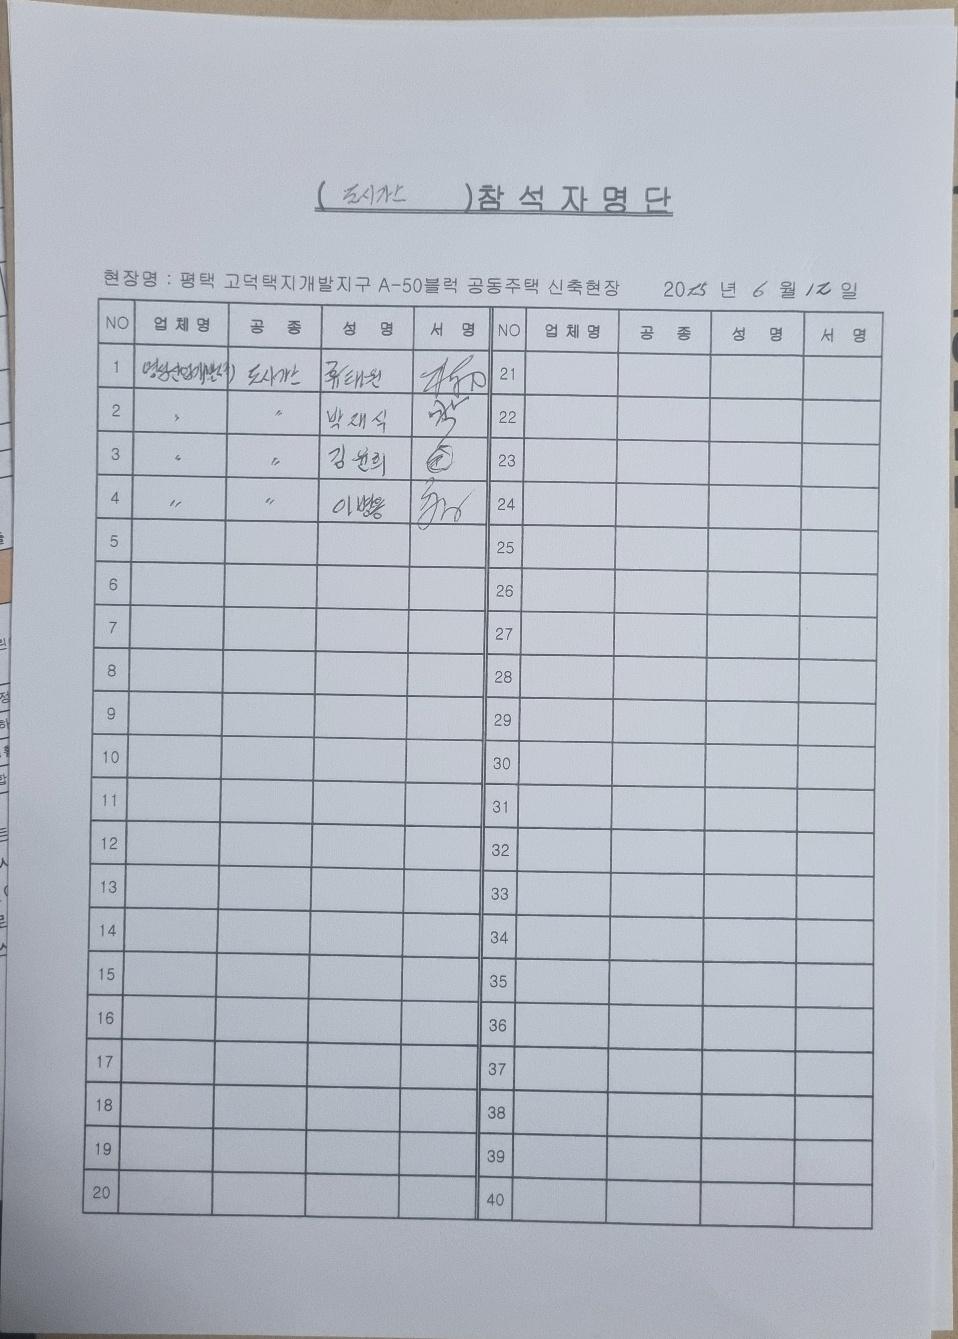 ( 도시가스 )참 석 자 명 단
현장명 : 평택 고덕택지개발지구 A-50블럭 공동주택 신축현장 2025 년 6 월 12 일
NO 업 체 명 공 종 성 명 서 명 NO 업 체 명 공 종 성 명 서 명
1 도시가스 류태원 21
2 〃 〃 박재식 22
3 〃 〃 김윤희 23
4 〃 〃 이병용 24
5 25
6 26
7 27
8 28
9 29
10 30
11 31
12 32
13 33
14 34
15 35
16 36
17 37
18 38
19 39
20 40